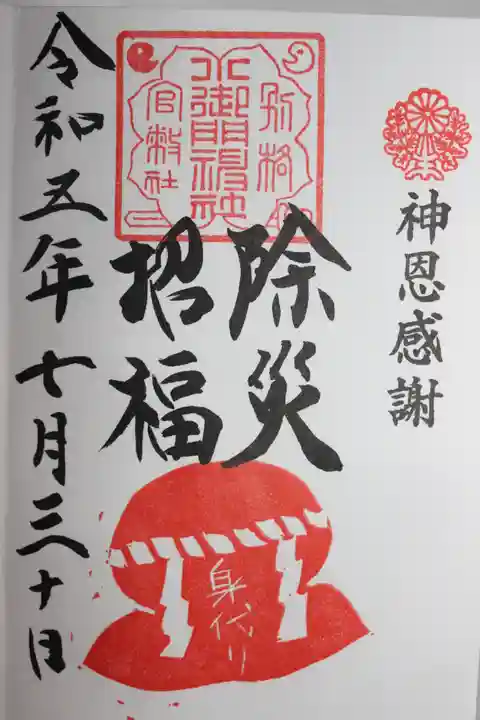 神恩感謝
除災
招福
別格
官幣社
身代り
令和五年七月三十日